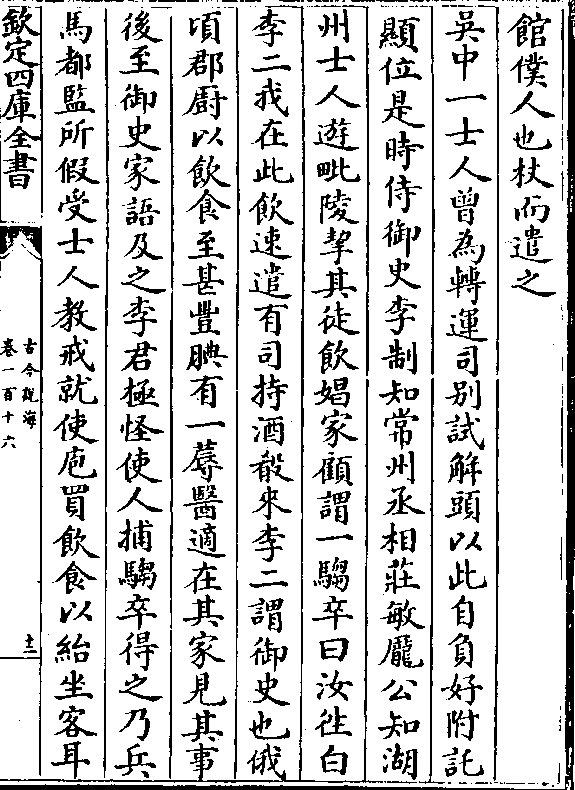 館僕人也杖而遣之
吳中一士人曾為轉運司別試解頭以此自負好附託
顯位是時侍御史李制知常州丞相莊敏龐公知湖
州士人遊毗陵挈其徒飲娼家顧謂一騶卒曰汝徃白
李二我在此飲速遣有司持酒殽來李二謂御史也俄
頃郡廚以飲食至甚豐腆有一蓐醫適在其家見其事
後至御史家語及之李君極怪使人捕騶卒得之乃兵
馬都監所假受士人教戒就使庖買飲食以紿坐客耳
欽定四庫全書
古今說海
卷一百十六
十二